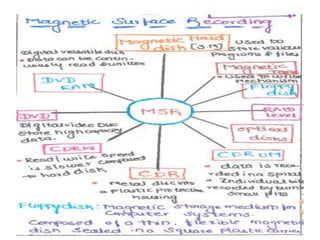 Magnetic Surface Recording
Magnetic Hard
disk
Used to
store various
Programs & files
Digital versatile disk
• Data can be contin-
uously read & written
Magnetic
• Used to write
mechanism
Floppy
disk
DVD
RAM
MSR
RAID
level
DVD
Digital video Disc
store high capacity
data.
optical
disks
CDRW
• Read/write speed
is slower compared
to hard disk
CDR
• Metal disc into
a plastic protective
housing
CDROM
• data is reco
ded in a spiral
• Individual bits
recorded by burn
small pits
Floppy disk: Magnetic storage medium for
computer systems.
composed of a thin, flexible magnetic
disk sealed in a square plastic carrier